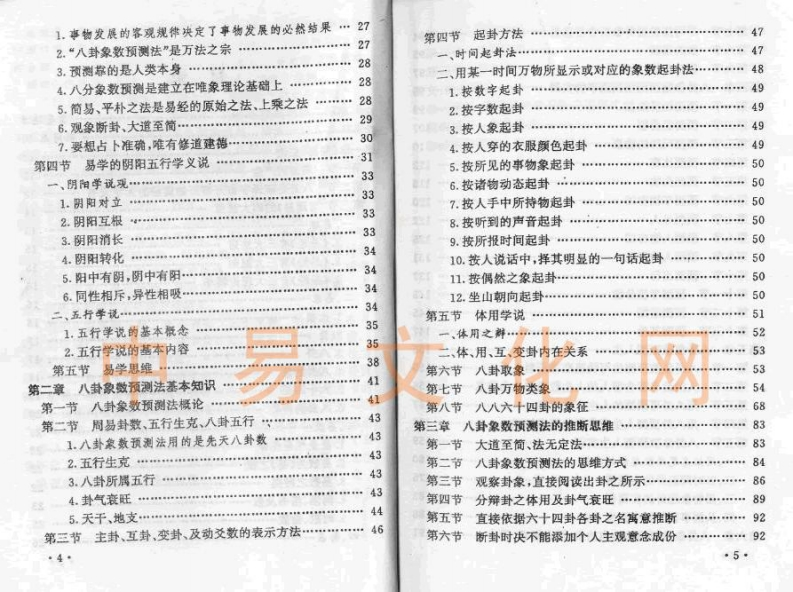 1.事物发展的客观规律决定了事物发展的必然结果 … 27
2.“八卦象数预测法”是万法之宗 … 27
3.预测靠的是人类本身 … 28
4.八分象数预测是建立在唯象理论基础上 … 28
5.简易、平朴之法是易经的原始之法、上乘之法 … 28
6.观象断卦、大道至简 … 29
7.要想占卜准确,唯有修道建德 … 30
第四节 易学的阴阳五行学义说 … 31
一、阴阳学说观 … 33
1.阴阳对立 … 33
2.阴阳互根 … 33
3.阴阳消长 … 33
4.阴阳转化 … 34
5.阳中有阴,阴中有阳 … 34
6.同性相斥,异性相吸 … 34
二、五行学说 … 34
1.五行学说的基本概念 … 35
2.五行学说的基本内容 … 35
第五节 易学思维 … 38
第二章 八卦象数预测法基本知识 … 41
第一节 八卦象数预测法概论 … 41
第二节 周易卦数、五行生克、八卦五行 … 43
1.八卦象数预测法用的是先天八卦数 … 43
2.五行生克 … 43
3.八卦所属五行 … 43
4.卦气衰旺 … 43
5.天干、地支 … 44
第三节 主卦、互卦、变卦、及动爻数的表示方法 … 46
·4·
第四节 起卦方法 … 47
一、时间起卦法 … 47
二、用某一时间万物所显示或对应的象数起卦法 … 48
1.按数字起卦 … 49
2.按字数起卦 … 49
3.按人象起卦 … 49
4.按人穿的衣服颜色起卦 … 49
5.按所见的事物象起卦 … 50
6.按诸物动态起卦 … 50
7.按人手中所持物起卦 … 50
8.按听到的声音起卦 … 50
9.按所报时间起卦 … 50
10.按人说话中,择其明显的一句话起卦 … 50
11.按偶然之象起卦 … 50
12.坐山朝向起卦 … 50
第五节 体用学说 … 51
一、体用之辩 … 52
二、体、用、互、变卦内在关系 … 53
第六节 八卦取象 … 53
第七节 八卦万物类象 … 54
第八节 八八六十四卦的象征 … 68
第三章 八卦象数预测法的推断思维 … 83
第一节 大道至简、法无定法 … 83
第二节 八卦象数预测法的思维方式 … 84
第三节 观察卦象,直接阅读出卦之所示 … 86
第四节 分辩卦之体用及卦气衰旺 … 89
第五节 直接依据六十四卦各卦之名寓意推断 … 92
第六节 断卦时决不能添加个人主观意念成份 … 92
·5·
中易文化网